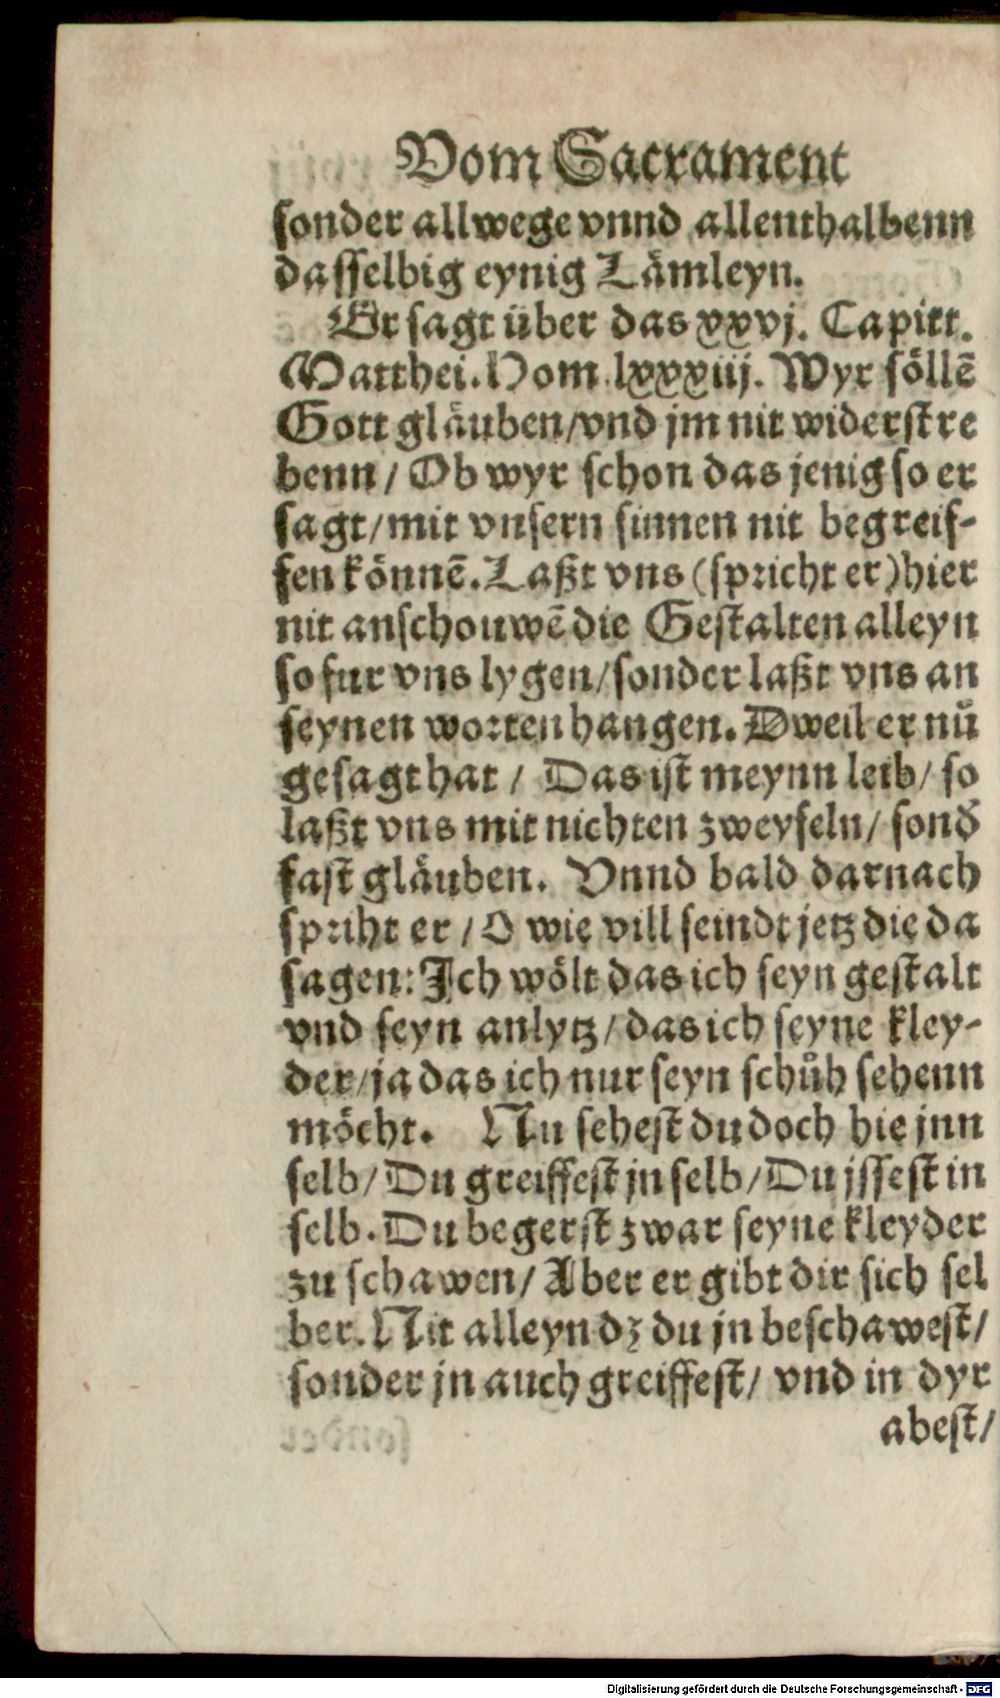 Vom Sacrament
sonder allwege vnnd allenthalbenn
dasselbig eynig Lämleyn.
Er sagt über das xxvj. Capitt.
Matthei. Hom. lxxxiij. Wyr söllē
Gott gläuben/vnd jm nit widerstre
benn / Ob wyr schon das jenig so er
sagt/mit vnsern sinnen nit begreif-
fen könnē. Laßt vns (spricht er) hier
nit anschouwē die Gestalten alleyn
so fur vns lygen/sonder laßt vns an
seynen worten hangen. Dweil er nů
gesagt hat / Das ist meynn leib/ so
laßt vns mit nichten zweyfeln/ sond̄
fast gläuben. Vnnd bald darnach
spriht er / O wie vill seindt jetz die da
sagen: Ich wölt das ich seyn gestalt
vnd seyn anlytz/ das ich seyne kley-
der/ja das ich nur seyn schůh sehenn
möcht. Nu sehest du doch hie jnn
selb/ Du greiffest jn selb/ Du jssest in
selb. Du begerst zwar seyne kleyder
zu schawen/ Aber er gibt dir sich sel
ber. Nit alleyn dz du jn beschawest/
sonder jn auch greiffest/ vnd in dyr
abest/
sonder
Digitalisierung gefördert durch die Deutsche Forschungsgemeinschaft - DFG